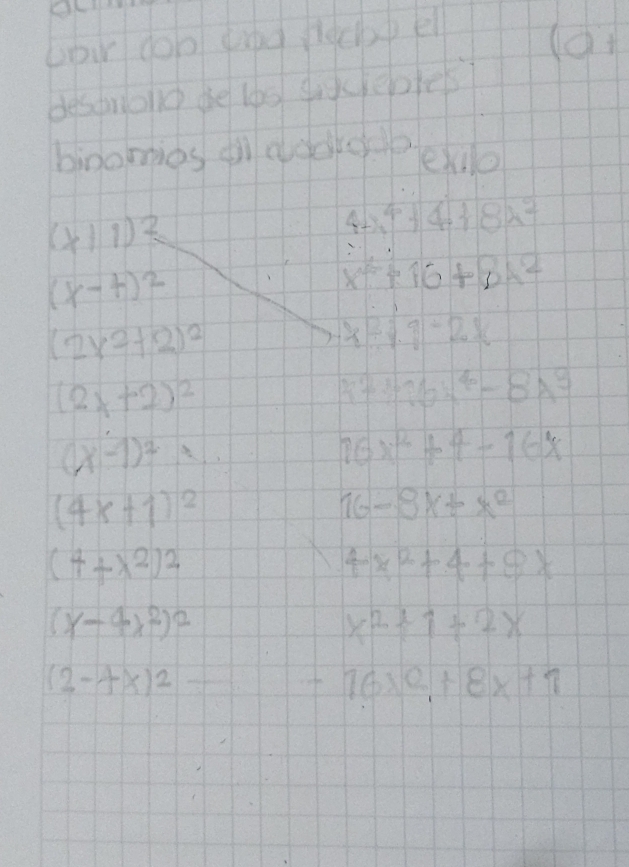 unir con una flecha el
desarrollo de los siguientes
binomios al cuadrado.
(x+1)² 4x⁴+4+8x²
(x-4)² x⁴+16+8x²
(2x²+2)² x²+1-2x
(2x+2)² x²+16x⁴-8x³
(x-1)² 16x²+4-16x
(4x+1)² 16-8x+x²
(4+x²)² 4x²+4+8x
(x-4x²)² x²+1+2x
(2-4x)² 16x²+8x+1